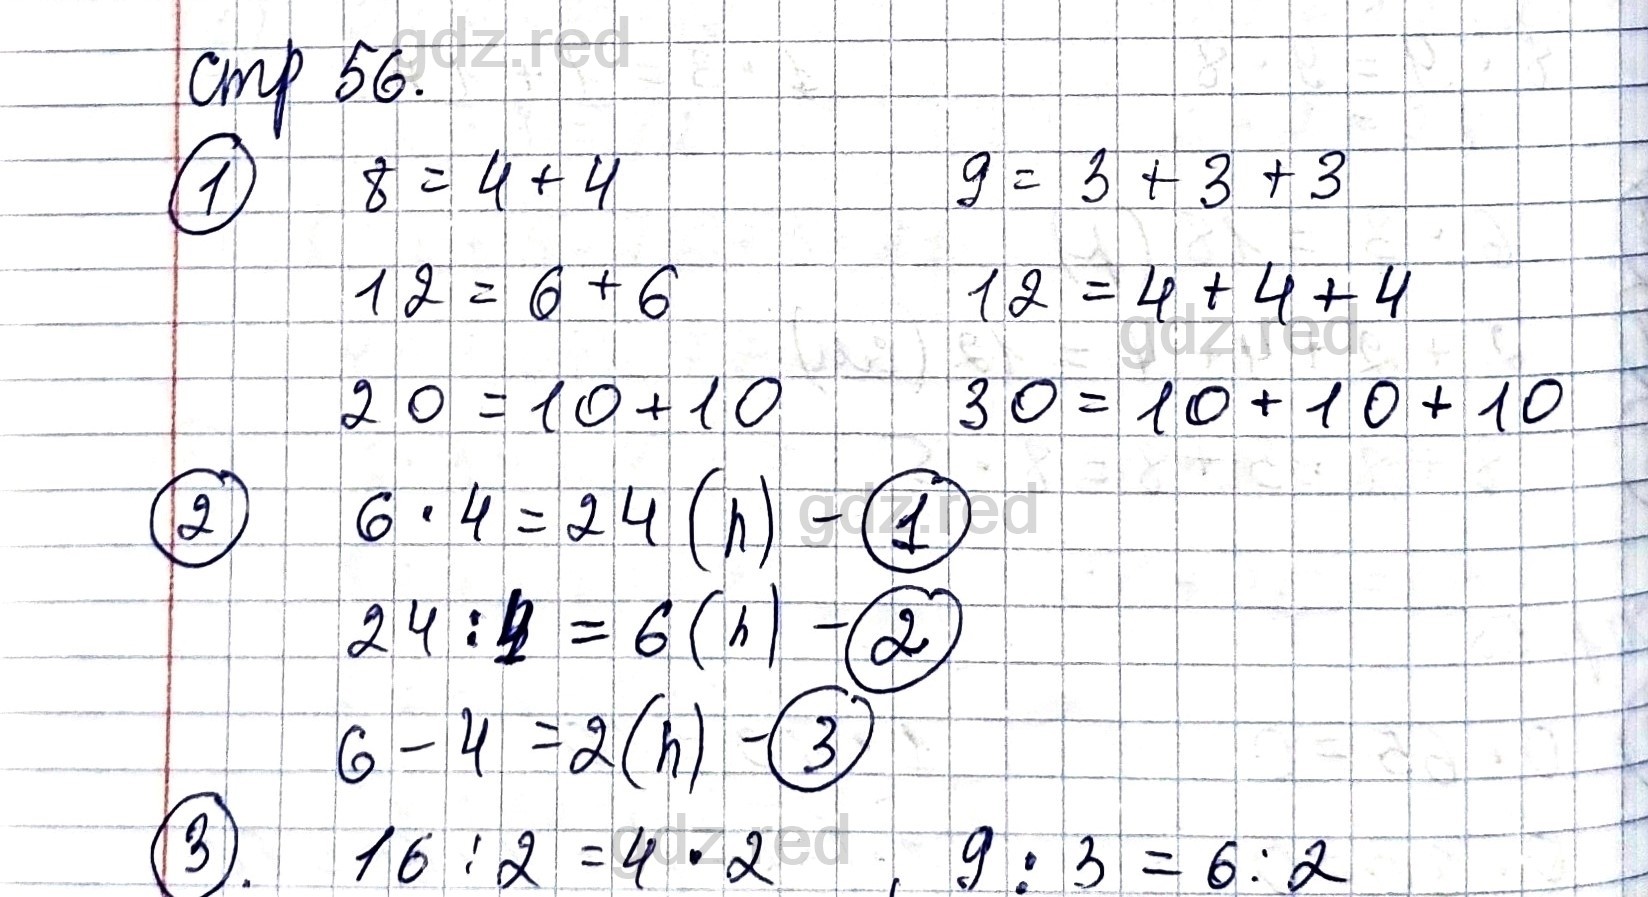 стр 56.
1 8 = 4 + 4 9 = 3 + 3 + 3
12 = 6 + 6 12 = 4 + 4 + 4
20 = 10 + 10 30 = 10 + 10 + 10
2 6 · 4 = 24 (п) - 1
24 : 4 = 6 (п) - 2
6 - 4 = 2 (п) - 3
3. 16 : 2 = 4 · 2 , 9 : 3 = 6 : 2
gdz.red
gdz.red
gdz.red
gdz.red